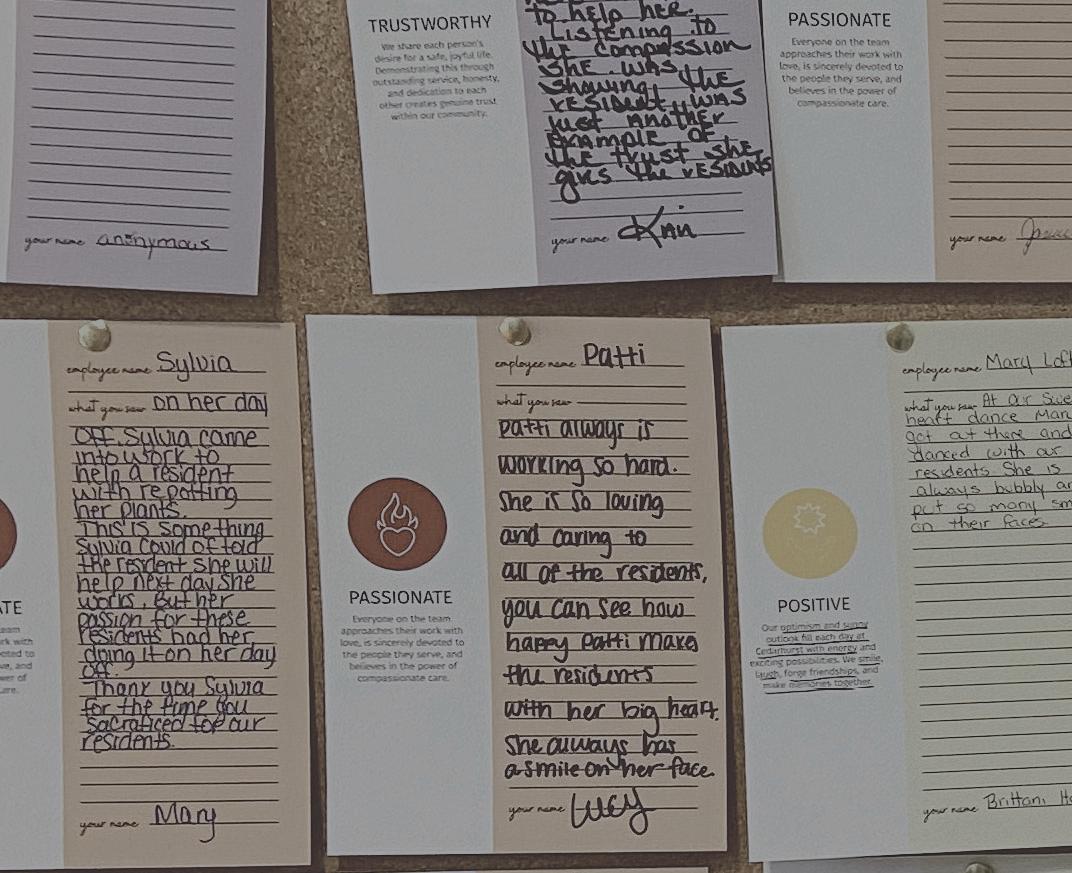 your name anonymous
TRUSTWORTHY
We share each person's
desire for a safe, joyful life.
Demonstrating this through
outstanding service, honesty,
and dedication to each
other creates genuine trust
within our community.
to help her.
Listening to
the compassion
she was
showing the
resident was
just another
example of
the trust she
gives the residents
your name
PASSIONATE
Everyone on the team
approaches their work with
love, is sincerely devoted to
the people they serve, and
believes in the power of
compassionate care.
your name
employee name Sylvia
what you saw on her day
off. Sylvia came
into work to
help a resident
with repotting
her plants.
This is something
Sylvia could of told
the resident she will
help next day she
works. But her
passion for these
residents had her
doing it on her day
off.
Thank you Sylvia
for the time you
sacraficed for our
residents.
your name Mary
PASSIONATE
Everyone on the team
approaches their work with
love, is sincerely devoted to
the people they serve, and
believes in the power of
compassionate care.
employee name Patti
what you saw
Patti always is
working so hard.
She is so loving
and caring to
all of the residents,
you can see how
happy Patti makes
the residents
with her big heart.
She always has
a smile on her face.
your name Lucy
POSITIVE
Our optimism and sunny
outlook fill each day at
Cedarhurst with energy and
exciting possibilities. We smile,
laugh, forge friendships, and
make memories together.
employee name Mary Loft
what you saw At our Swe
heart dance Mary
got out there and
danced with our
residents. She is
always bubbly an
put so many sm
on their faces
your name Brittani Ho